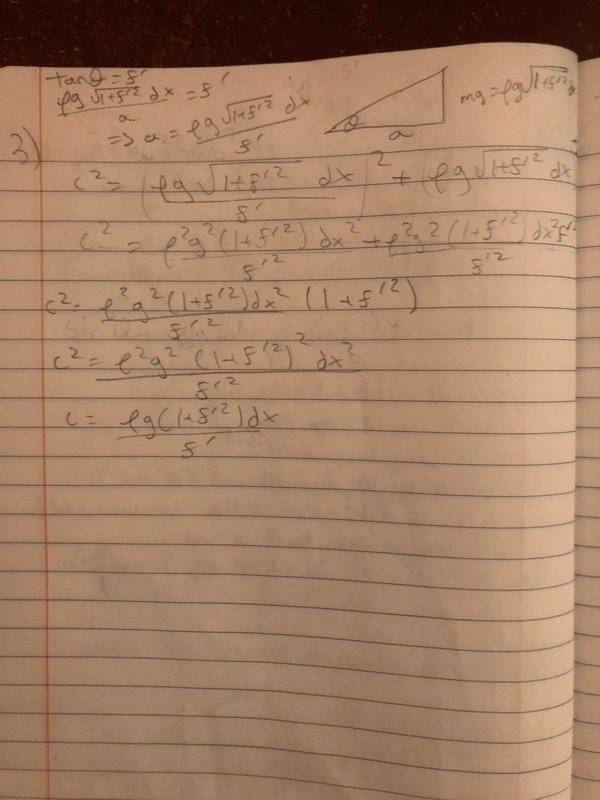 tanθ = f'
ρg√1+f'² dx / a = f'
=> a = ρg√1+f'² dx / f'
θ
a
mg = ρg√1+f'² d
3)
c² = (ρg√1+f'² dx / f')² + (ρg√1+f'² dx
c² = ρ²g²(1+f'²) dx² / f'² + ρ²g²(1+f'²) dx²f'² / f'²
c² = ρ²g²(1+f'²)dx² / f'² (1+f'²)
c² = ρ²g² (1+f'²)² dx² / f'²
c = ρg(1+f'²)dx / f'